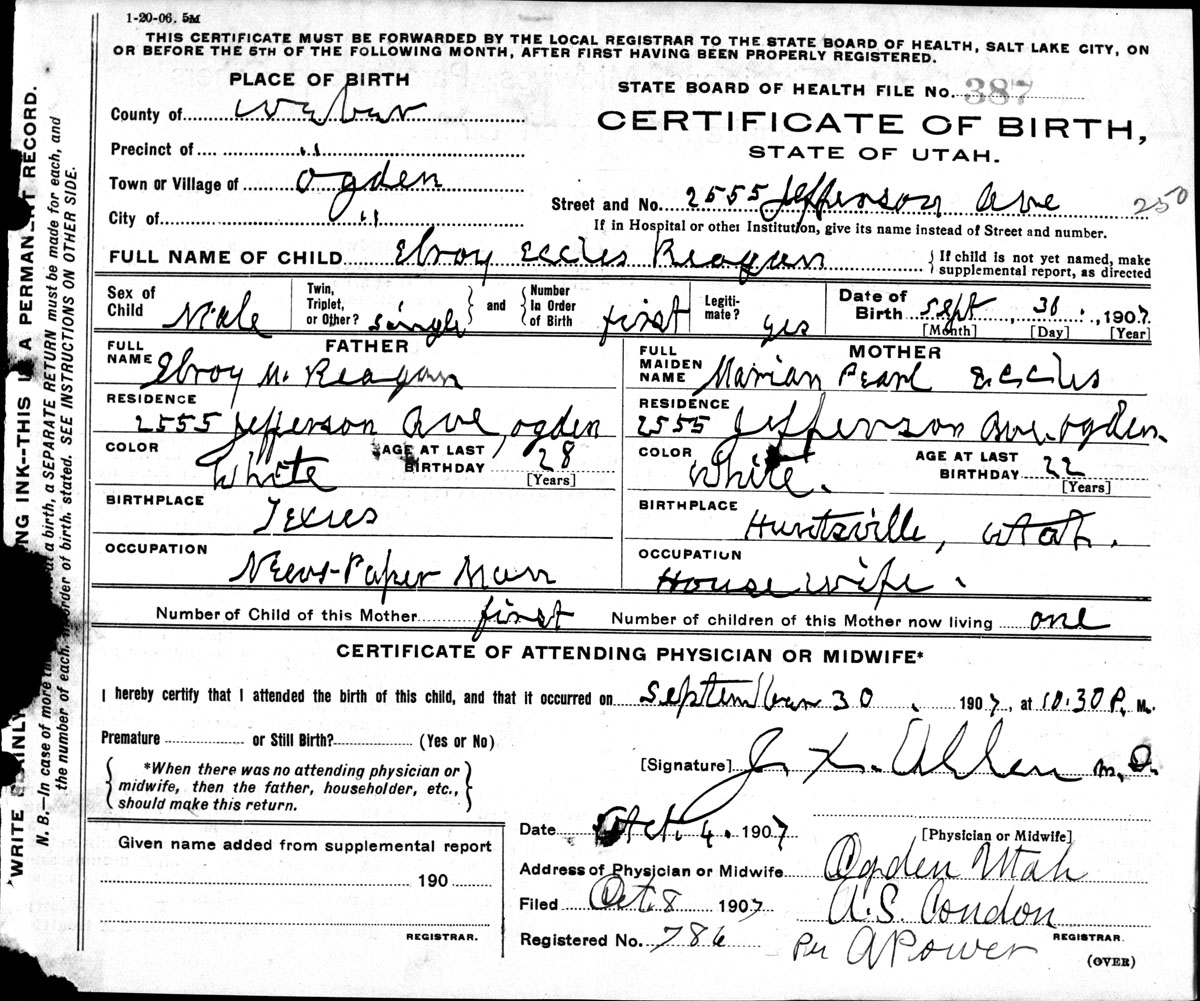 1-20-06. 5M
THIS CERTIFICATE MUST BE FORWARDED BY THE LOCAL REGISTRAR TO THE STATE BOARD OF HEALTH, SALT LAKE CITY, ON
OR BEFORE THE 5TH OF THE FOLLOWING MONTH, AFTER FIRST HAVING BEEN PROPERLY REGISTERED.
PLACE OF BIRTH
STATE BOARD OF HEALTH FILE No. 387
County of Weber
CERTIFICATE OF BIRTH,
STATE OF UTAH.
Precinct of "
Town or Village of Ogden
Street and No. 2555 Jefferson Ave 250
City of "
If in Hospital or other Institution, give its name instead of Street and number.
FULL NAME OF CHILD Elroy Eccles Reagan { If child is not yet named, make
supplemental report, as directed
Sex of Child Male
Twin, Triplet, or Other? single } and { Number In Order of Birth first
Legiti-mate? yes
Date of Birth Sept 30. , 1907.
[Month] [Day] [Year]
FATHER
FULL NAME Elroy M. Reagan
RESIDENCE
2555 Jefferson Ave, Ogden
COLOR White
AGE AT LAST BIRTHDAY 28
[Years]
BIRTHPLACE
Texas
OCCUPATION
News-Paper Man
MOTHER
FULL MAIDEN NAME Marian Pearl Eccles
RESIDENCE
2555 Jefferson Ave. Ogden.
COLOR White.
AGE AT LAST BIRTHDAY 22
[Years]
BIRTHPLACE
Huntsville, Utah.
OCCUPATION
House wife.
Number of Child of this Mother first Number of children of this Mother now living one
CERTIFICATE OF ATTENDING PHYSICIAN OR MIDWIFE*
I hereby certify that I attended the birth of this child, and that it occurred on September 30 , 1907, at 10:30 P. M.
Premature or Still Birth? (Yes or No)
[Signature] J. X. Allen M.D.
{ *When there was no attending physician or
midwife, then the father, householder, etc.,
should make this return. }
Date Oct. 4. 1907
[Physician or Midwife]
Given name added from supplemental report
190
REGISTRAR.
Address of Physician or Midwife Ogden Utah
Filed Oct. 8 1907 A.S. Condon
REGISTRAR.
Registered No. 786 Per A Power
(OVER)
WRITE PLAINLY
NG INK--THIS IS A PERMANENT RECORD.
N. B.—In case of more
at a birth, a SEPARATE RETURN must be made for each, and
the number of each, in order of birth, stated. SEE INSTRUCTIONS ON OTHER SIDE.